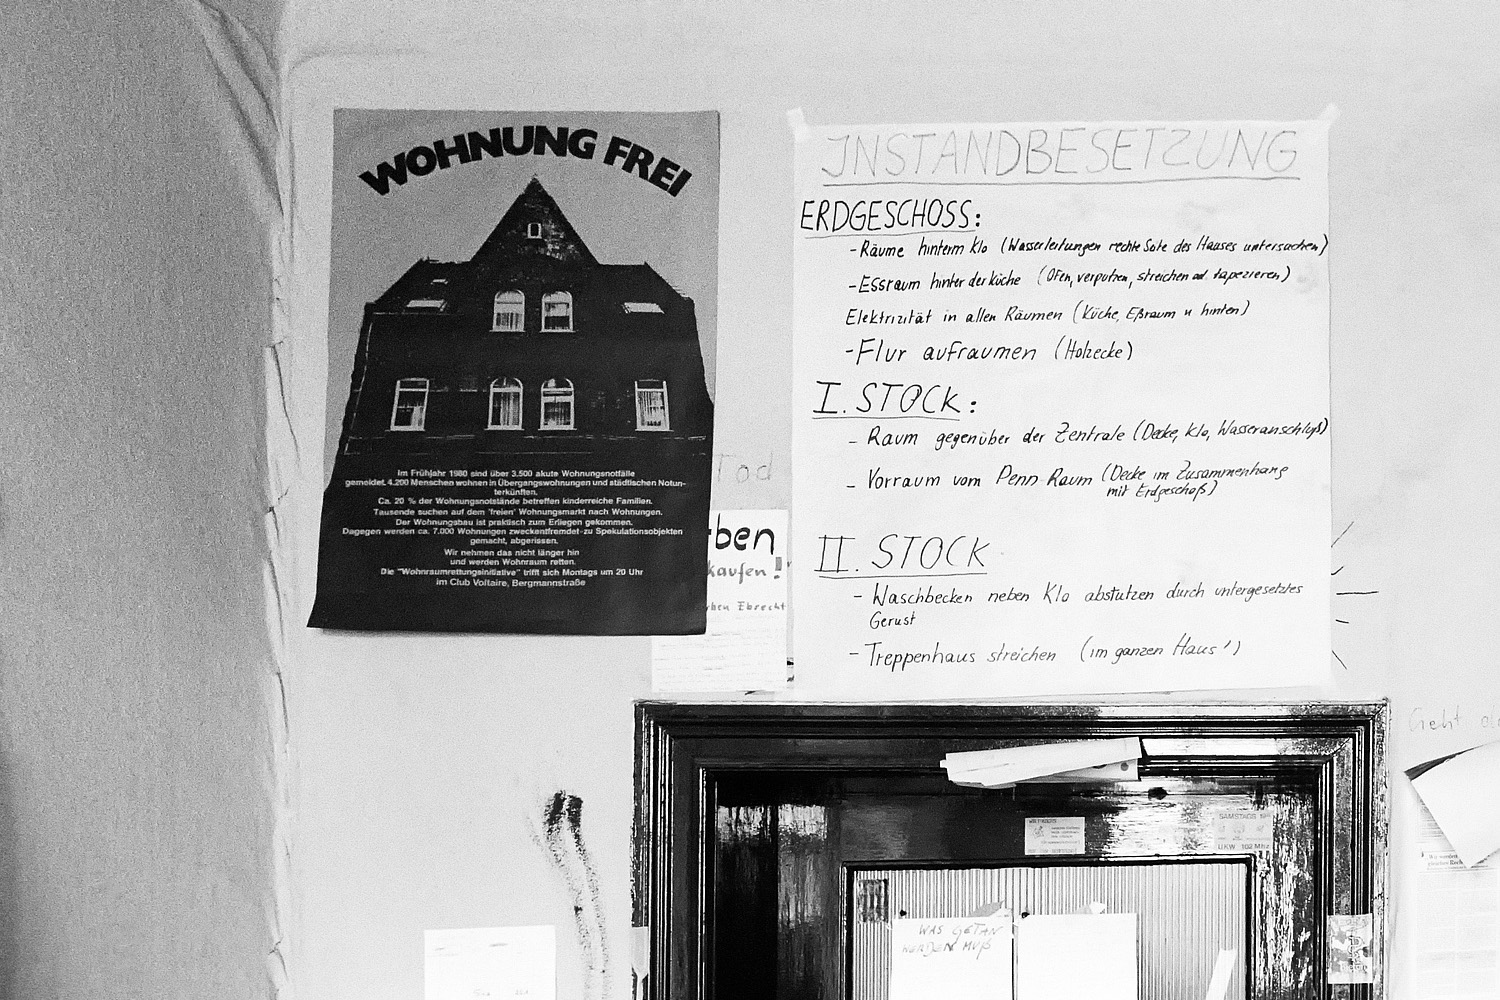 WOHNUNG FREI
Im Frühjahr 1980 sind über 3.500 akute Wohnungsnotfälle
gemeldet. 4.200 Menschen wohnen in Übergangswohnungen und städtischen Notun-
terkünften.
Ca. 20 % der Wohnungsnotstände betreffen kinderreiche Familien.
Tausende suchen auf dem 'freien' Wohnungsmarkt nach Wohnungen.
Der Wohnungsbau ist praktisch zum Erliegen gekommen.
Dagegen werden ca. 7.000 Wohnungen zweckentfremdet-zu Spekulationsobjekten
gemacht, abgerissen.
Wir nehmen das nicht länger hin
und werden Wohnraum retten.
Die "Wohnraumrettungsinitiative" trifft sich Montags um 20 Uhr
im Club Voltaire, Bergmannstraße
Tod
ben
kaufen!
Ebrecht
INSTANDBESETZUNG
ERDGESCHOSS:
- Räume hinterm Klo (Wasserleitungen rechte Seite des Hauses untersuchen)
- Essraum hinter der Küche (Ofen, verputzen, streichen od. tapezieren)
Elektrizität in allen Räumen (Küche, Eßraum u hinten)
- Flur aufraumen (Holzecke)
I. STOCK:
- Raum gegenüber der Zentrale (Decke, Klo, Wasseranschluß)
- Vorraum vom Penn-Raum (Decke im Zusammenhang
mit Erdgeschoß)
II. STOCK
- Waschbecken neben Klo abstützen durch untergesetztes
Gerust
- Treppenhaus streichen (im ganzen Haus!)
Geht
SAMSTAGS
UKW 102 Mhz
WAS GETAN
WERDEN MUß